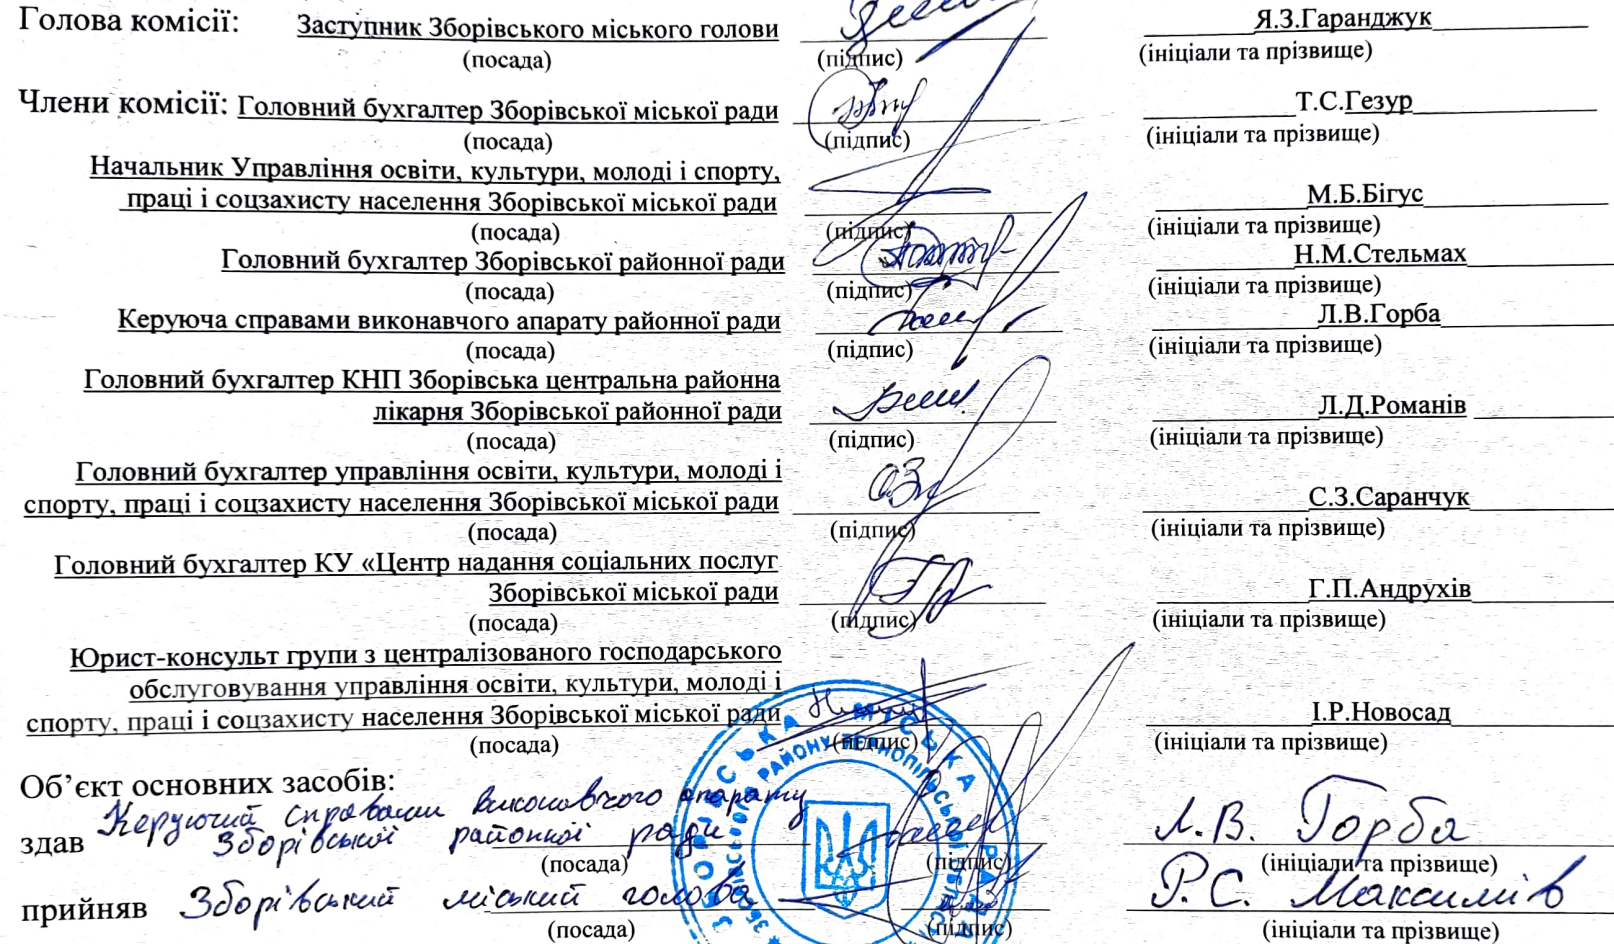 Голова комісії: Заступник Зборівського міського голови Я.З.Гаранджук
(посада) (підпис) (ініціали та прізвище)
Члени комісії: Головний бухгалтер Зборівської міської ради Т.С.Гезур
(посада) (підпис) (ініціали та прізвище)
Начальник Управління освіти, культури, молоді і спорту,
праці і соцзахисту населення Зборівської міської ради М.Б.Бігус
(посада) (підпис) (ініціали та прізвище)
Головний бухгалтер Зборівської районної ради Н.М.Стельмах
(посада) (підпис) (ініціали та прізвище)
Керуюча справами виконавчого апарату районної ради Л.В.Горба
(посада) (підпис) (ініціали та прізвище)
Головний бухгалтер КНП Зборівська центральна районна
лікарня Зборівської районної ради Л.Д.Романів
(посада) (підпис) (ініціали та прізвище)
Головний бухгалтер управління освіти, культури, молоді і
спорту, праці і соцзахисту населення Зборівської міської ради С.З.Саранчук
(посада) (підпис) (ініціали та прізвище)
Головний бухгалтер КУ «Центр надання соціальних послуг
Зборівської міської ради Г.П.Андрухів
(посада) (підпис) (ініціали та прізвище)
Юрист-консульт групи з централізованого господарського
обслуговування управління освіти, культури, молоді і
спорту, праці і соцзахисту населення Зборівської міської ради І.Р.Новосад
(посада) (підпис) (ініціали та прізвище)
Об’єкт основних засобів:
Керуючий справами виконавчого апарату
здав Зборівської районної ради Л.В. Горба
(посада) (підпис) (ініціали та прізвище)
прийняв Зборівський міський голова Р.С. Максимів
(посада) (підпис) (ініціали та прізвище)
ЗБОРІВСЬКА МІСЬКА РАДА
РАЙОНУ ТЕРНОПІЛЬСЬКОЇ